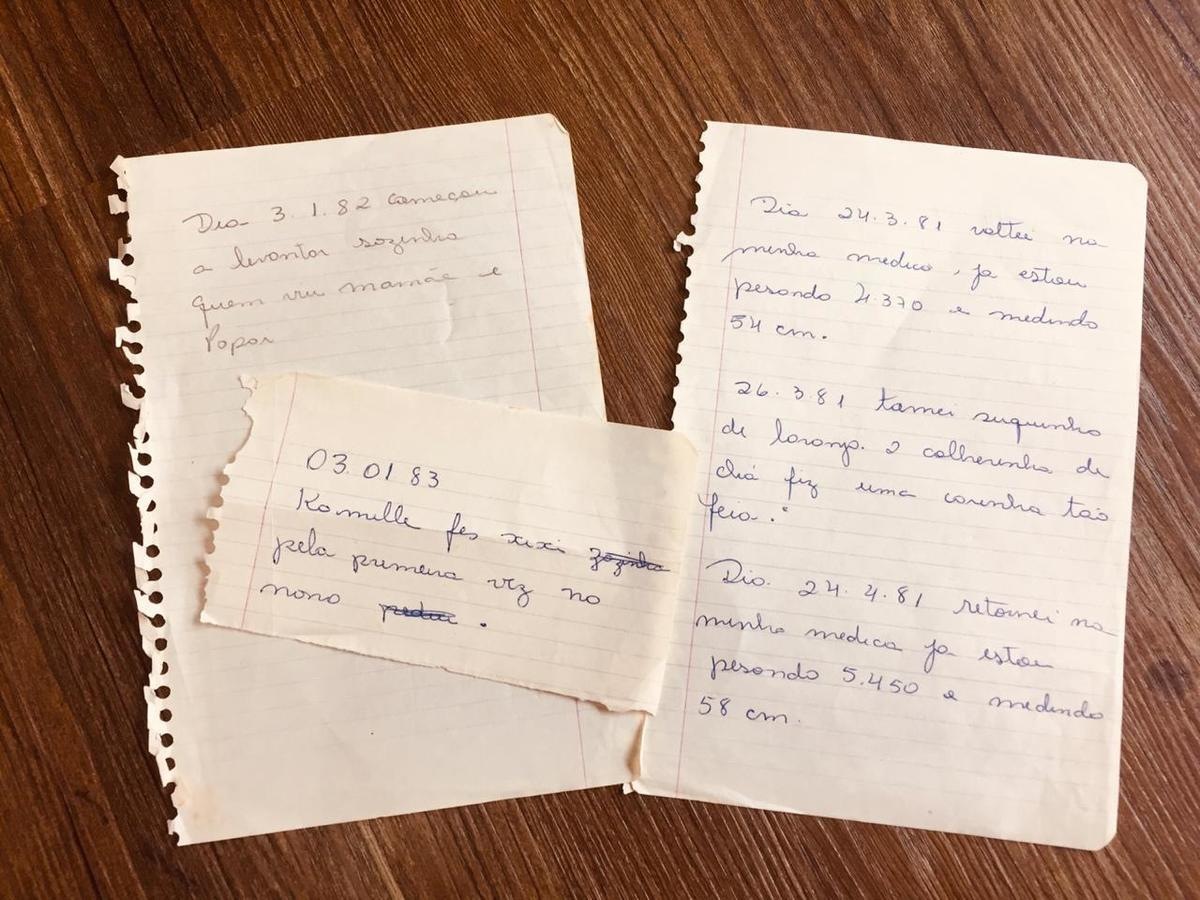 Dia 3.1.82 começou
a levantar sozinha
quem viu mamãe e
Papai
03.01 83
Kamille fes xixi zozinha
pela primeira vez no
nono .
Dia 24.3.81 voltei na
minha medica, ja estou
pesando 4.370 e medindo
54 cm.
26.3.81 tamei suquinho
de laranja. 2 colherinha de
chá fiz uma carinha tão
feia.
Dia. 24.4.81 retornei na
minha medica ja estou
pesando 5.450 e medindo
58 cm.